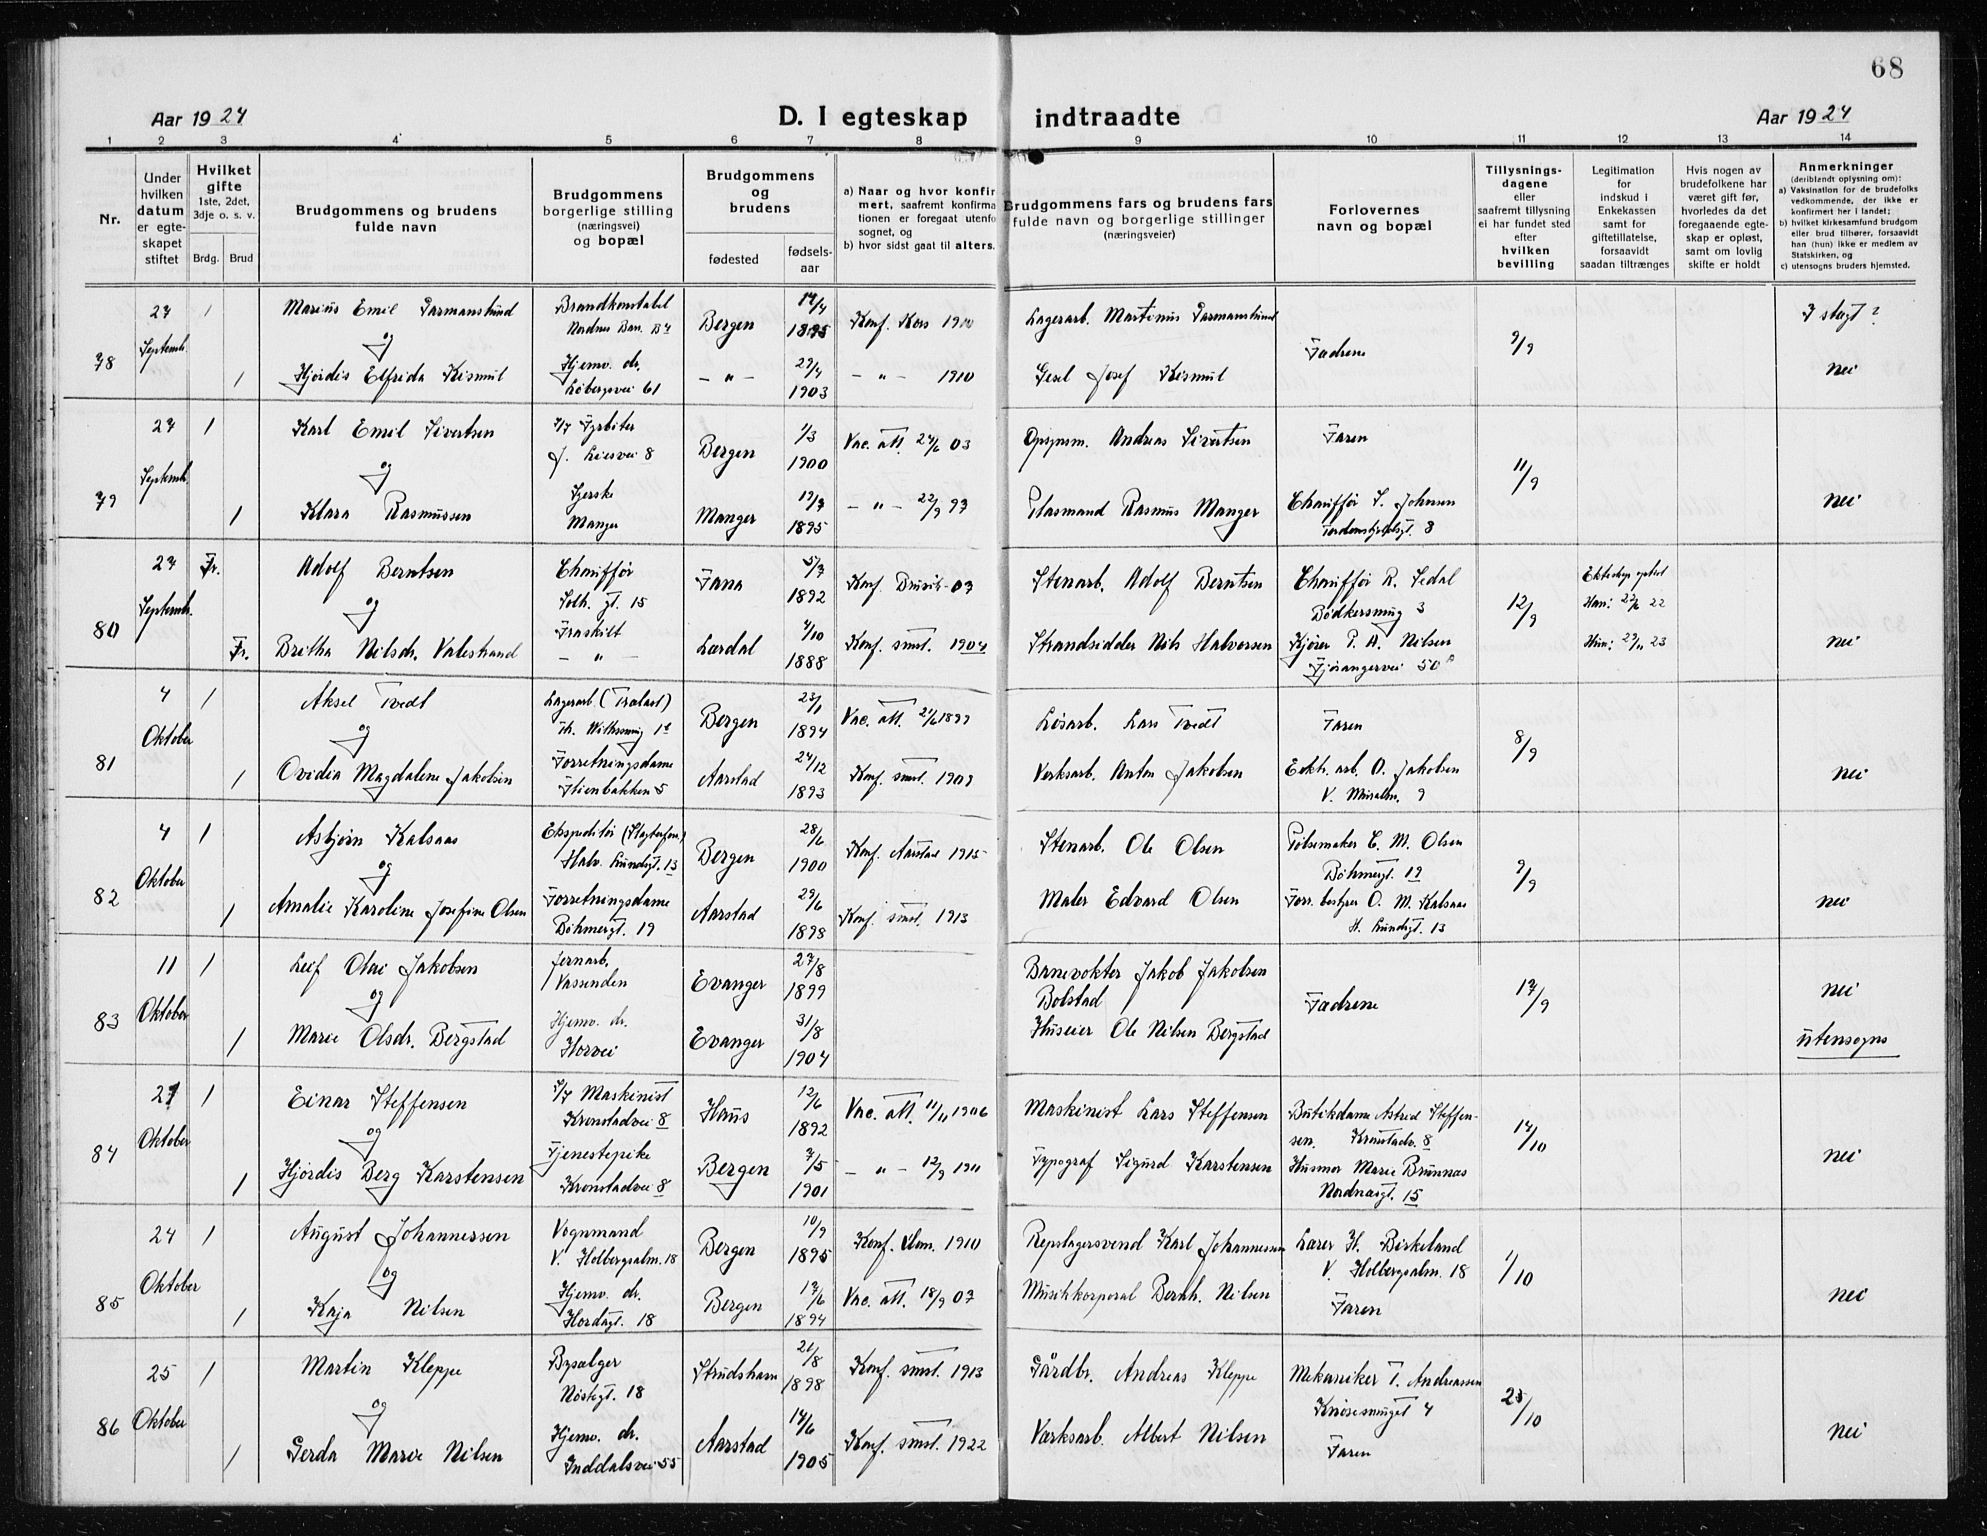 68
Aar 1924 D. I egteskap indtraadte Aar 1924
1 2 3 4 5 6 7 8 9 10 11 12 13 14
Nr.
Under hvilken datum er egteskapet stiftet
Hvilket gifte 1ste, 2det, 3dje o. s. v.
Brdg. Brud
Brudgommens og brudens fulde navn
Brudgommens borgerlige stilling (næringsvei) og bopæl
Brudgommens og brudens
fødested fødsels-aar
a) Naar og hvor konfirmert, saafremt konfirmationen er foregaat utenfo sognet, og
b) hvor sidst gaat til alters.
Brudgommens fars og brudens fars fulde navn og borgerlige stillinger (næringsveier)
Forlovernes navn og bopæl
Tillysnings-dagene eller saafremt tillysning ei har fundet sted efter hvilken bevilling
Legitimation for indskud i Enkekassen samt for giftetillatelse, forsaavidt saadan tiltrænges
Hvis nogen av brudefolkene har været gift før, hvorledes da det foregaaende egteskap er opløst, samt om lovlig skifte er holdt
Anmerkninger (deriblandt oplysning om):
a) Vaksination for de brudefolks vedkommende, der ikke er konfirmert her i landet;
b) hvilket kirkesamfund brudgom eller brud tilhører, forsaavidt han (hun) ikke er medlem av Statskirken, og
c) utensogns bruders hjemsted.
78 27 Septemb. 1 Marius Emil Parmanshund Brandkonstabel Nordnes Bergen 17/4 1895 Konf. Kors 1910 Lagerarb. Martinus Parmanshund Fædrene 9/9 I slegt?
og
1 Hjørdis Elfrida Kismul Hjemv. dr. Løbergsvei 61 — " — 29/4 1903 — " — 1910 Gesel Josef Kismul nei
79 27 Septemb. 1 Karl Emil Sivertsen Fyrbøter J. Liesvei 8 Bergen 1/3 1900 Vac. att. 24/6 03 Opsynsm. Andreas Sivertsen Faren 11/9
og
1 Klara Rasmussen Syerske Manger Manger 19/7 1895 — " — 22/9 97 Plasmand Rasmus Manger Chauffør S. Johnsen Tordenskjoldsgt. 8 nei
80 27 Septemb. Fr. Adolf Berntsen Chauffør Solh. gt. 15 Fana 5/7 1892 Konf. 07 Stenarb. Adolf Berntsen Chauffør R. Sedal Bødkersmug 3 12/9 Ekteskap opløst Han: 27/6 22
og
Fr. Britha Nilsdr. Valestrand Fraskilt — " — Lærdal 4/10 1888 Konf. smst. 1904 Strandsidder Nils Halvorsen Kjører P. A. Nilsen Fjøsangervei 50 A Hun: 29/11 23 nei
81 4 Oktober 1 Aksel Tvedt Lagerarb. (Trælast) Th. Bergen 23/1 1894 Vac. att. 24/6 1899 Løsarb. Lars Tvedt Faren 8/9
og
1 Ovidia Magdalene Jakobsen Forretningsdame Stienbakken 5 Aarstad 24/12 1893 Konf. smst. 1909 Verksarb. Anton Jakobsen arb. O. Jakobsen V. Muralm. 9 nei
82 4 Oktober 1 Asbjørn Kalsaas Ekspeditør Halv. Lundsgt. 13 Bergen 28/6 1900 Konf. Aarstad 1915 Stenarb. Ole Olsen Pølsemaker E. M. Olsen Bøhmergt. 19 9/9
og
1 Amalie Karoline Josefine Olsen Forretningsdame Bøhmergt. 19 Aarstad 29/6 1898 Konf. smst. 1913 Maler Edvard Olsen Forr. bestyrer O. M. Kalsaas H. Lundsgt. 13 nei
83 11 Oktober 1 Leif Olai Jakobsen Jernarb. Vassenden Evanger 27/8 1899 Banevokter Jakob Jakobsen Bolstad Fædrene 17/9 nei
og
1 Marie Olsdr. Bergstad Hjemv. dr. Horvei Evanger 31/8 1904 Huseier Ole Nilsen Bergstad utensogns
84 21 Oktober 1 Einar Steffensen Maskinist Kronstadvei 8 Haus 12/6 1892 Vac. att. 11/11 1906 Maskinist Lars Steffensen Butikdame Astrid Steffensen. Kronstadv. 8 14/10
og
1 Hjørdis Berg Karstensen Tjenestepike Kronstadvei 8 Bergen 7/5 1901 — " — 12/9 1911 Typograf Sigurd Karstensen Husmor Marie Brunnas Nordnæsgt. 15 nei
85 24 Oktober 1 August Johannessen Vognmand V. Holbergsalm. 18 Bergen 10/9 1895 Konf. Dom. 1910 Repslagersvend Karl Johannessen Lærer H. Birkeland V. Holbergsalm. 18 1/10
og
1 Kaja Nilsen Hjemv. dr. Hordagt. 18 Bergen 17/6 1894 Vac. att. 18/9 07 Musikkorporal Bernh. Nilsen Faren nei
86 25 Oktober 1 Martin Kleppe Bysælger Nøstegt. 18 Strudshavn 21/8 1898 Konf. smst. 1913 Gårdbr. Andreas Kleppe Mekaniker T. Andreassen Knøsesmuget 4 25/10
og
1 Gerda Marie Nilsen Hjemv. dr. Inddalsvei 55 Aarstad 14/6 1905 Konf. smst. 1922 Værksarb. Albert Nilsen Faren nei